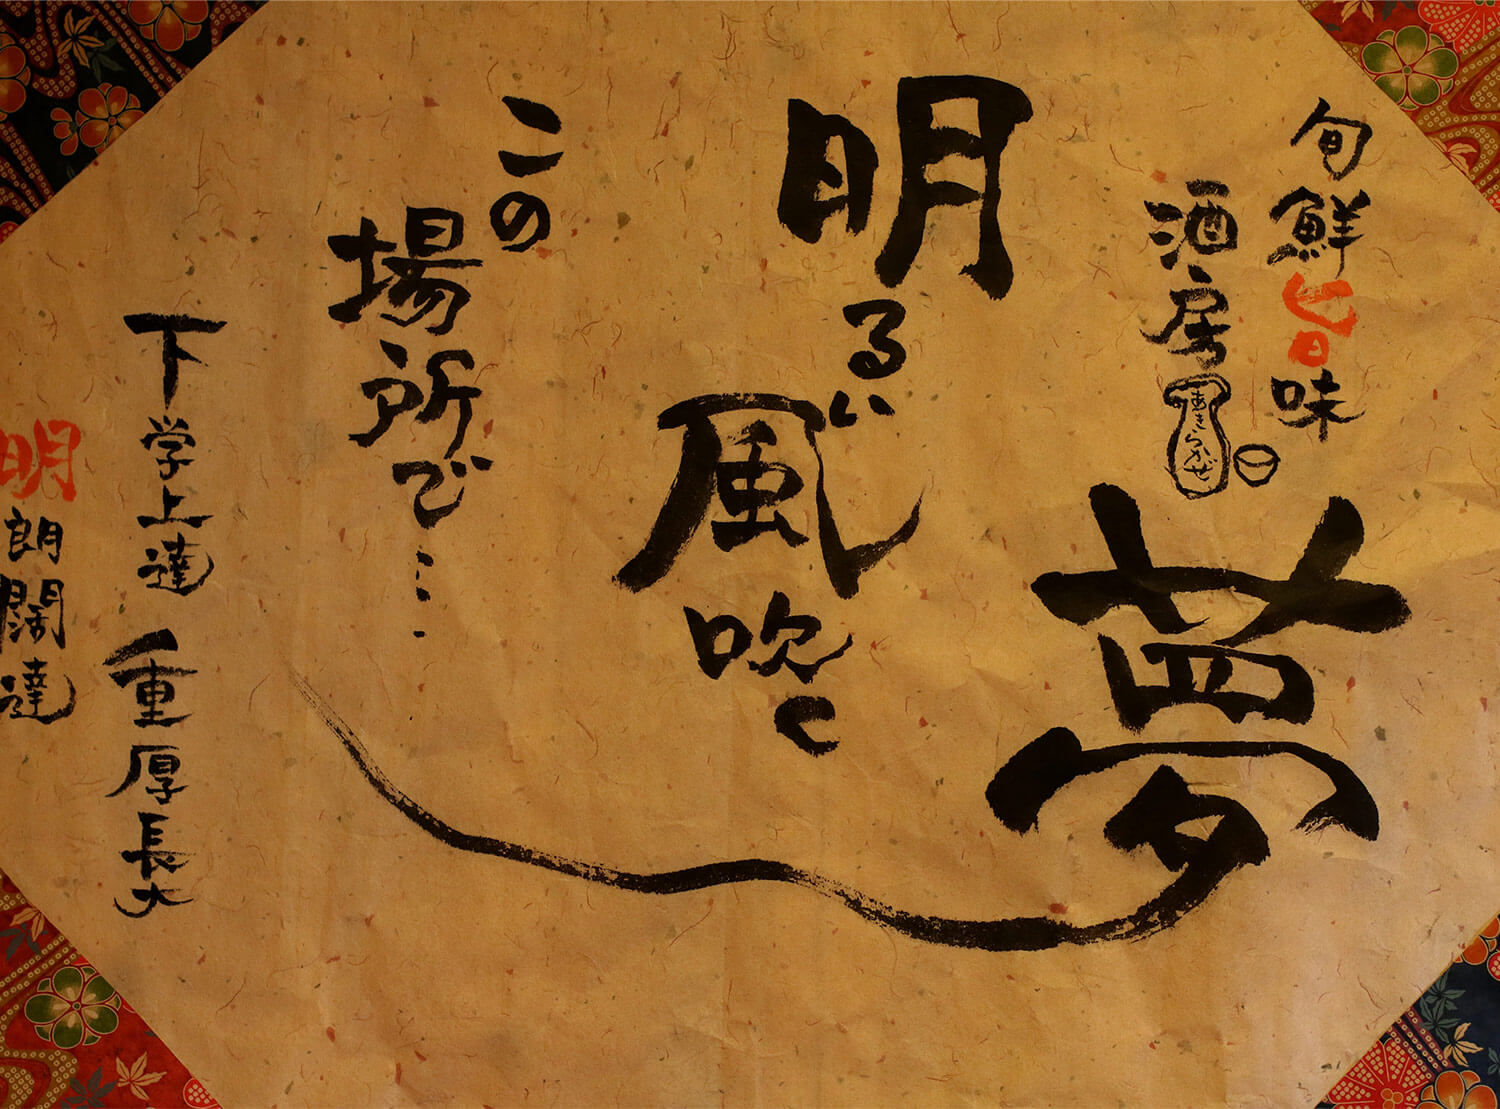 旬鮮旨味
酒房
あきらかぜ
夢
明るい
風吹く
この
場所で…
下学上達 重厚長大
明朗闊達